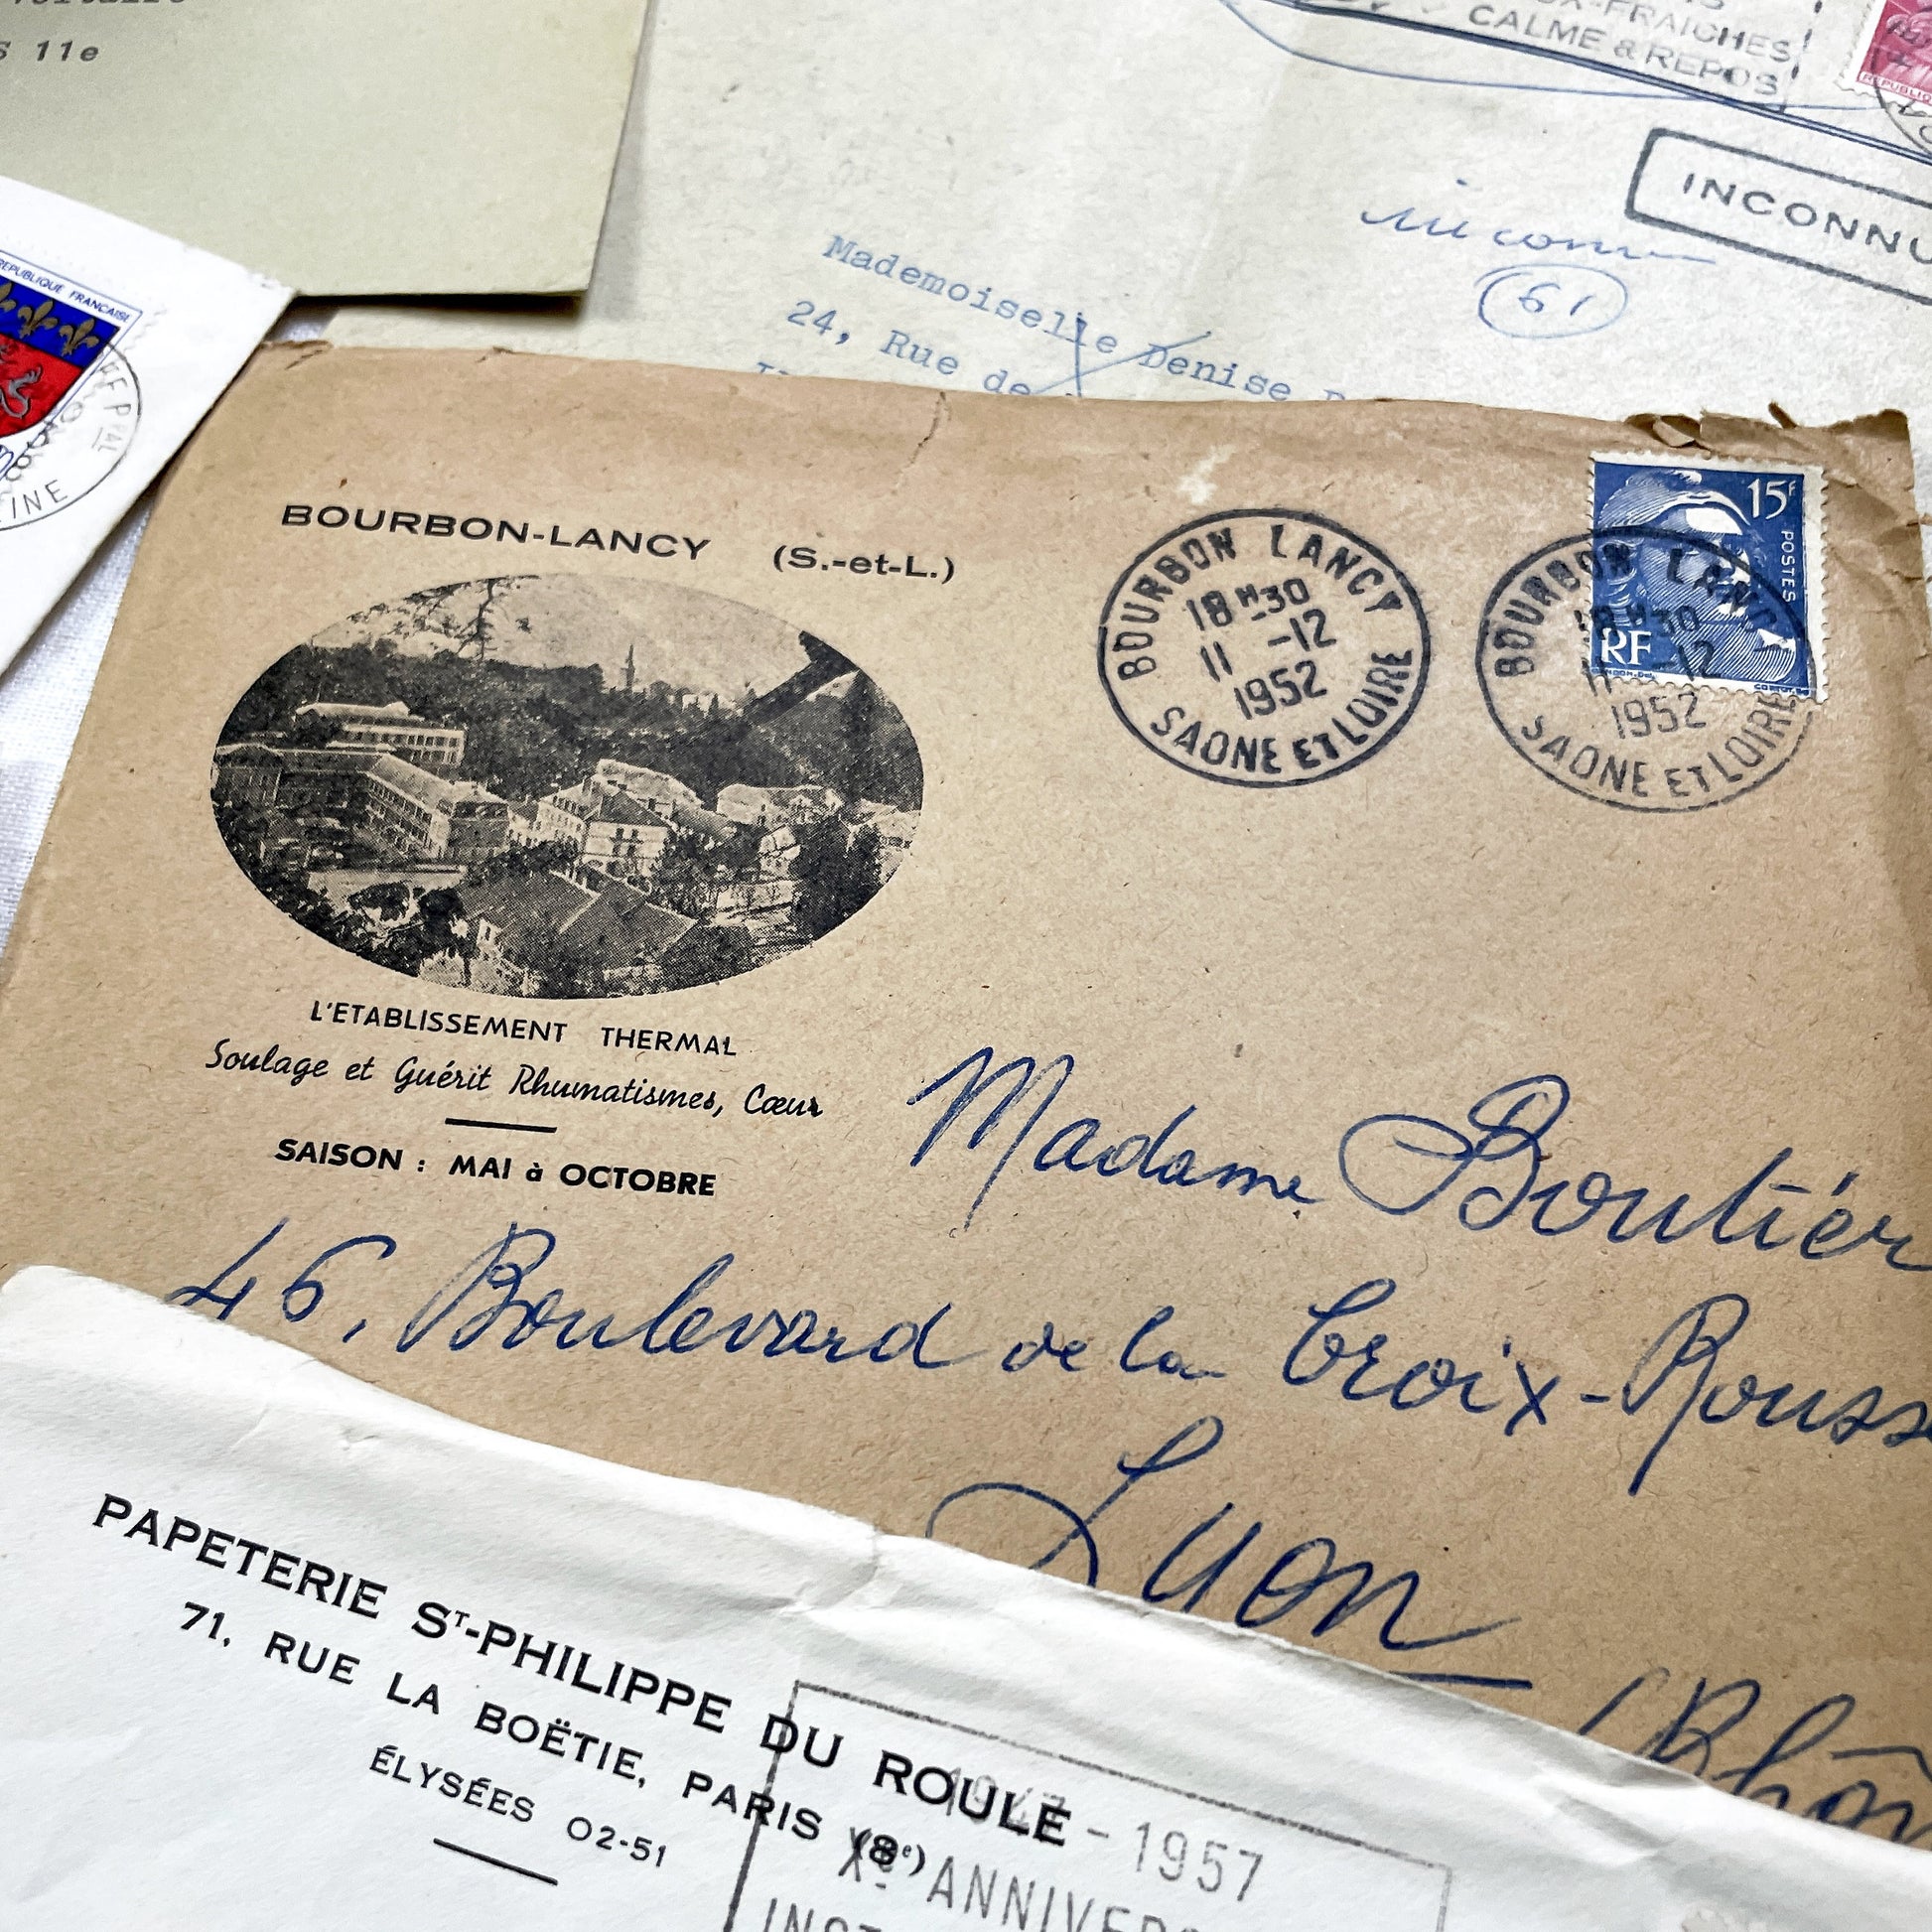 S 11e
RÉPUBLIQUE FRANÇAISE
INE
X-FRAICHES
CALME & REPOS
INCONNU
inconnu
61
Mademoiselle Denise
24, Rue de
BOURBON-LANCY (S.-et-L.)
L'ETABLISSEMENT THERMAL
Soulage et Guérit Rhumatismes, Cœur
SAISON : MAI à OCTOBRE
BOURBON LANCY
18 H 30
11 -12
1952
SAONE ET LOIRE
15F
POSTES
RF
BOURBON LANCY
18 H 30
11 -12
1952
SAONE ET LOIRE
Madame Boutier
46, Boulevard de la Croix-Rousse
Lyon
(Rhôn
PAPETERIE ST-PHILIPPE DU ROULE
71, RUE LA BOËTIE, PARIS (8e)
ÉLYSÉES 02-51
1947 - 1957
Xe ANNIVER